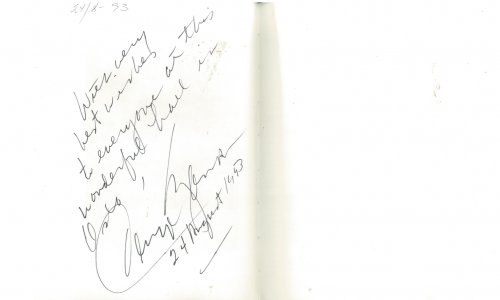 24/8-93
With very
best wishes
to everyone at this
wonderful hall in
Oslo,
24 August 1993